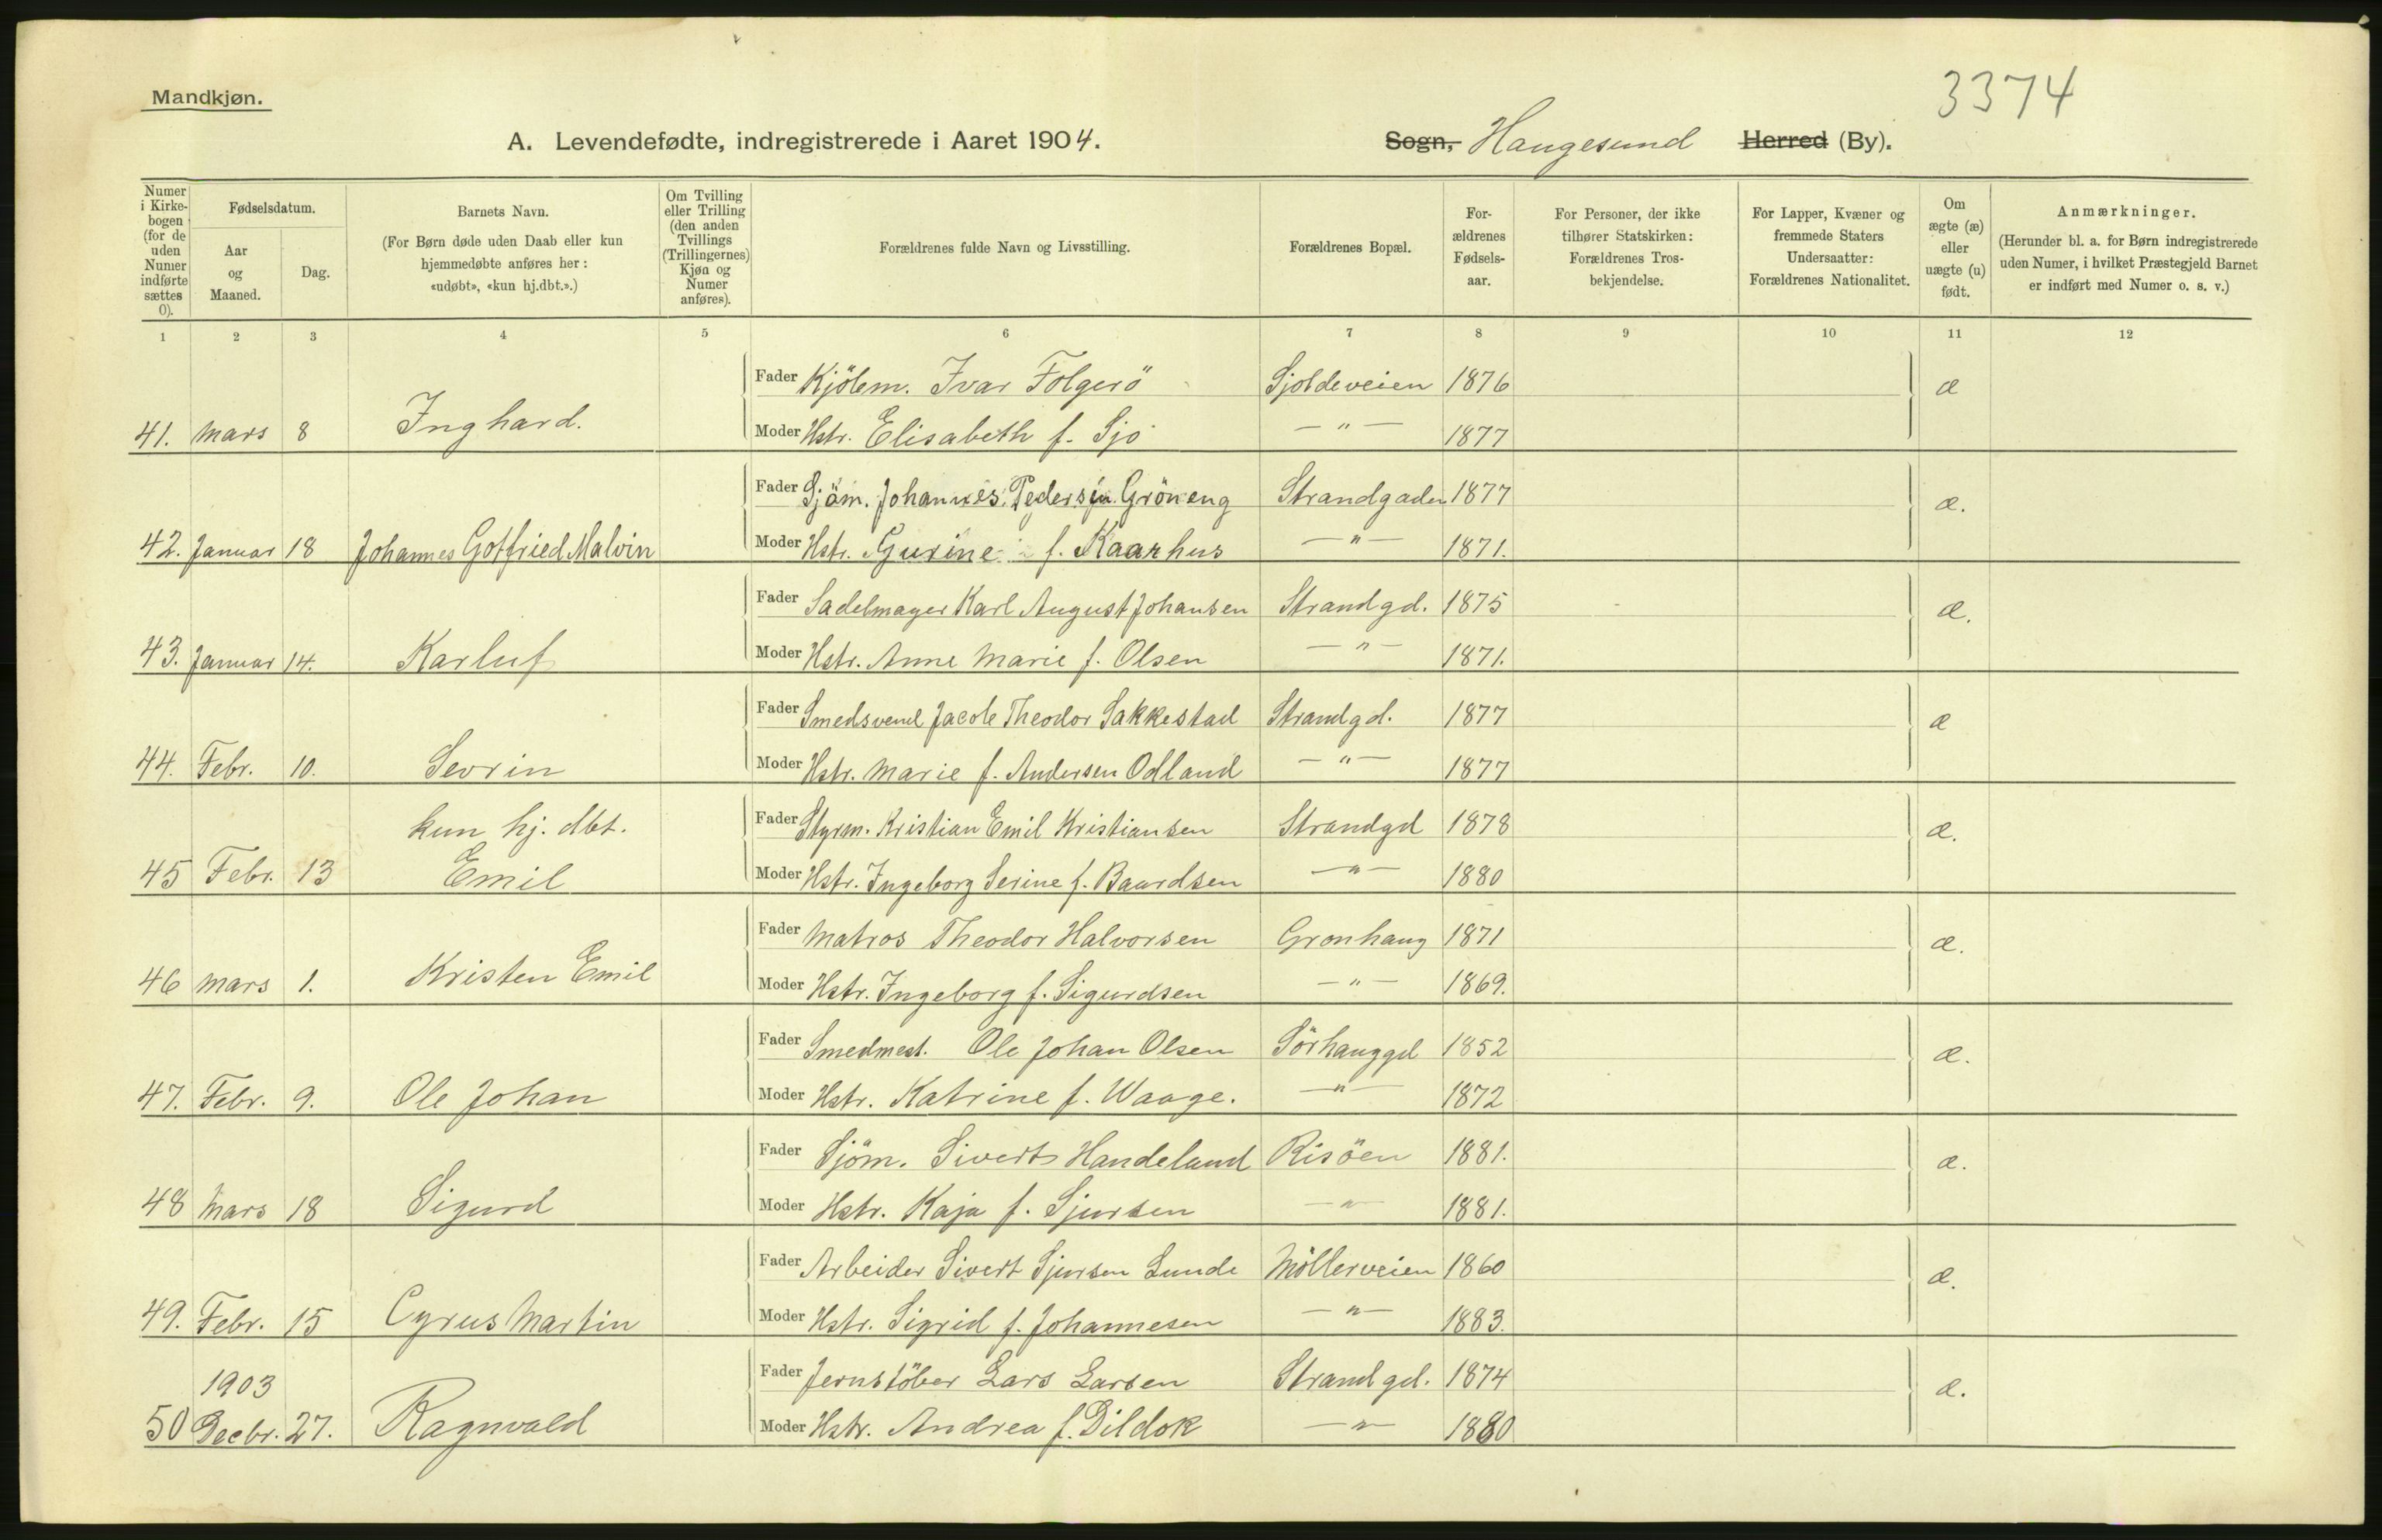 3374
Mandkjøn.
A. Levendefødte, indregistrerede i Aaret 1904. Sogn, Haugesund Herred (By).
Numer i Kirkebogen (for de uden Numer indførte sættes 0).
Fødselsdatum.
Aar og Maaned.
Dag.
Barnets Navn.
(For Børn døde uden Daab eller kun hjemmedøbte anføres her: «udøbt», «kun hj.dbt.».)
Om Tvilling eller Trilling (den anden Tvillings (Trillingernes) Kjøn og Numer anføres).
Forældrenes fulde Navn og Livsstilling.
Forældrenes Bopæl.
For-ældrenes Fødsels-aar.
For Personer, der ikke tilhører Statskirken: Forældrenes Tros-bekjendelse.
For Lapper, Kvæner og fremmede Staters Undersaatter: Forældrenes Nationalitet.
Om ægte (æ) eller uægte (u) født.
Anmærkninger.
(Herunder bl. a. for Børn indregistrerede uden Numer, i hvilket Præstegjeld Barnet er indført med Numer o. s. v.)
1 2 3 4 5 6 7 8 9 10 11 12
Fader Kjölem. Ivar Folgerö Sjoldeveien 1876 æ
41. Mars 8 Inghard. Moder Hstr. Elisabeth f. Sjo — " — 1877
Fader Sjöm. Johannes Pedersen Gröneng Strandgaden 1877 æ.
42. Januar 18 Johannes Gotfried Malvin Moder Hstr. Gurine f. Kaarhus — " — 1871.
Fader Sadelmager Karl August Johansen Strandgd. 1875 æ.
43. Januar 14. Karluf Moder Hstr. Anne Marie f. Olsen — " — 1871.
Fader Smedsvend Jacob Theodor Sakkestad Strandgd. 1877 æ
44. Febr. 10. Sevrin Moder Hstr. Marie f. Andersen Odland — " — 1877
kun hj. dbt. Fader Styrm. Kristian Emil Kristiansen Strandgd 1878 æ.
45 Febr. 13 Emil Moder Hstr. Ingeborg Serine f. Baardsen — " — 1880
Fader Matros Theodor Halvorsen Gronhaug 1871 æ.
46 Mars 1. Kristen Emil Moder Hstr. Ingeborg f. Sigurdsen — " — 1869.
Fader Smedmest. Ole Johan Olsen Sörhauggd 1852 æ.
47. Febr. 9. Ole Johan Moder Hstr. Katrine f. Waage. — " — 1872
Fader Sjöm. Sivert Handeland Risöen 1881. æ.
48 Mars 18 Sigurd Moder Hstr. Kaja f. Sjursen — " — 1881.
Fader Arbeider Sivert Sjursen Lunde Möllerveien 1860 æ.
49. Febr. 15 Cyrus Martin Moder Hstr. Sigrid f. Johannesen — " — 1883.
1903 Fader Jernstöber Lars Larsen Strandgd. 1874 æ.
50 Decbr. 27. Ragnvald Moder Hstr. Andrea f. Dildok — " — 1880